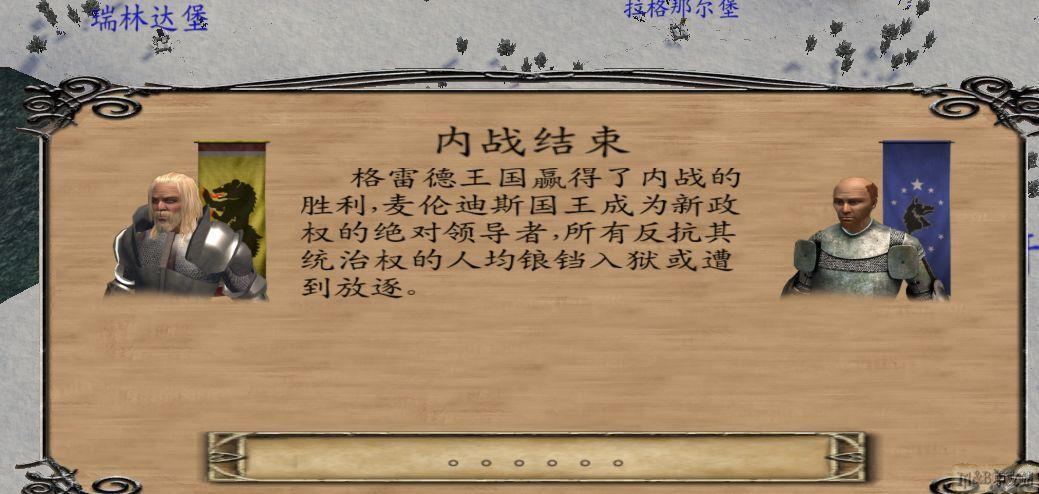 瑞林达堡
拉格那尔堡
内战结束
格雷德王国赢得了内战的
胜利,麦伦迪斯国王成为新政
权的绝对领导者,所有反抗其
统治权的人均锒铛入狱或遭
到放逐。